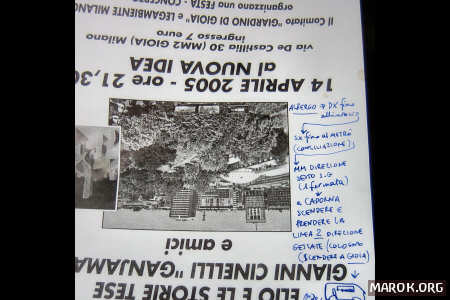 ELIO E LE STORIE TESE
GIANNI CINELLLI "GANJAMA
e amici
14 APRILE 2005 - ore 21,30
al NUOVA IDEA
via De Castillia 30 (MM2 GIOIA) Milano
ingresso 7 euro
Il Comitato "GIARDINO DI GIOIA" e LEGAMBIENTE MILANO
organizzano una FESTA - CONCERTO
ALBERGO → DX fino
all'incrocio
SX fino al METRÒ
(CONCILIAZIONE)
MM DIREZIONE
SESTO S.G
(1 fermata)
a CADORNA
SCENDERE E
PRENDERE LA
LINEA 2 DIREZIONE
GESSATE (COLOGNO)
(SCENDERE A GIOIA)
MAROK.ORG